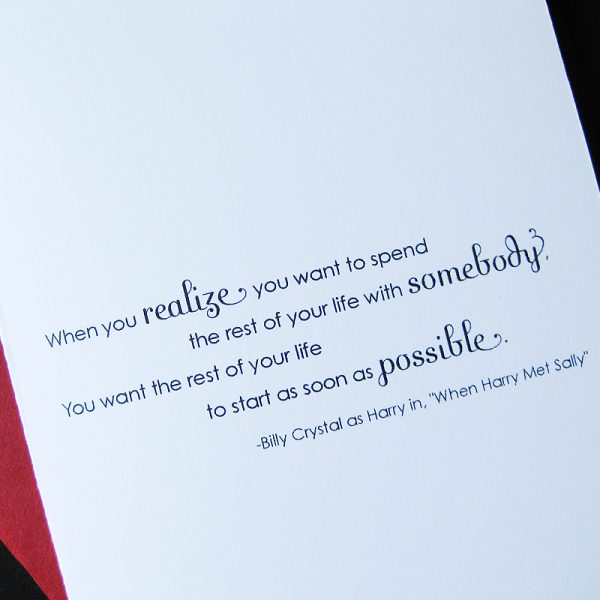 When you realize you want to spend
the rest of your life with somebody,
You want the rest of your life
to start as soon as possible.
-Billy Crystal as Harry in, "When Harry Met Sally"